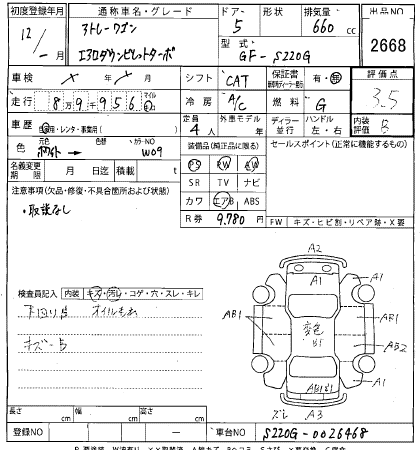 初度登録年月 通称車名・グレード ドアー 形状 排気量 出品NO
12/-月 アトレーワゴン 5 660cc 2668
エアロダウンビレットターボ 型式 GF-S220G
車検 × 年 × 月 シフト CAT 保証書 有・無 評価点
走行 8万9千956 マイル km 冷房 A/C 燃料 G 3.5
車歴 自家用・レンタ・事業用( ) 定員 4人 外車モデル 年 ディーラー 並行 ハンドル 左・右 内装評価 B
色 元色 ホワイト 色替 カラーNO W09 装備品(純正品に限る) セールスポイント(正常に機能するもの)
名義変更期限 月 日迄 積載量 t PS PW AW
注意事項(欠品・修復・不具合箇所および状態) SR TV ナビ
・取説なし カワ エアB ABS
R券 9,780円 FW キズ・ヒビ割・リペア跡・X要
A2
A1 A1
検査員記入 内装 キズ・汚れ・コゲ・穴・スレ・キレ
下回り占 オイルもれ AB1 変色 AB1
キズ-占 AB2
AB1 A1
ズレ A3
長さ cm 幅 cm 高さ cm
登録NO - 車台NO S220G-0026468